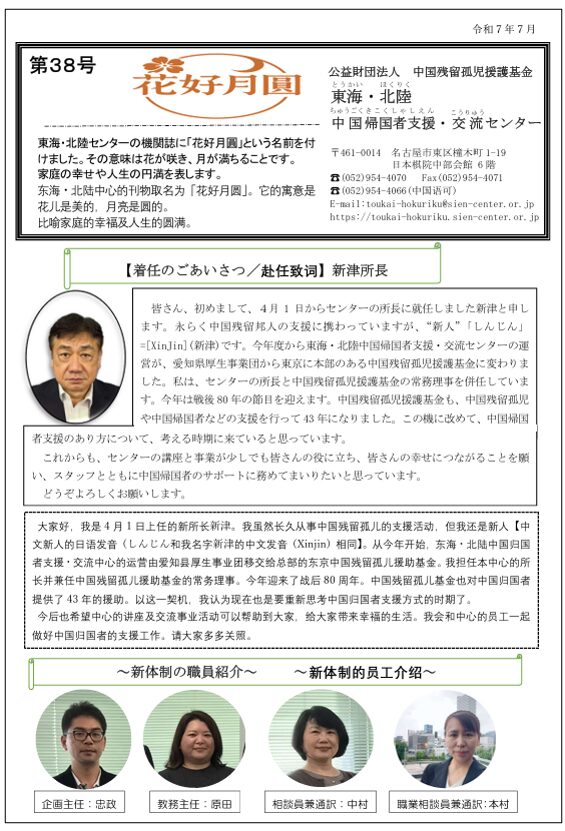 令和7年7月
第38号
花好月圓
東海・北陸センターの機関誌に「花好月圓」という名前を付
けました。その意味は花が咲き、月が満ちることです。
家庭の幸せや人生の円満を表します。
东海・北陆中心的刊物取名为「花好月圆」。它的寓意是
花儿是美的，月亮是圆的。
比喻家庭的幸福及人生的圆满。
公益財団法人　中国残留孤児援護基金
とうかい　ほくりく
東海・北陸
ちゅうごくきこくしゃしえん　こうりゅう
中国帰国者支援・交流センター
〒461-0014　名古屋市東区橦木町1-19
日本棋院中部会館 6階
☎(052)954-4070　Fax(052)954-4071
☎(052)954-4066(中国语可)
E-mail:toukai-hokuriku@sien-center.or.jp
https://toukai-hokuriku.sien-center.or.jp
【着任のごあいさつ／赴任致词】新津所長
皆さん、初めまして、４月１日からセンターの所長に就任しました新津と申し
ます。永らく中国残留邦人の支援に携わっていますが、“新人”「しんじん」
=[XinJin](新津)です。今年度から東海・北陸中国帰国者支援・交流センターの運
営が、愛知県厚生事業団から東京に本部のある中国残留孤児援護基金に変わりま
した。私は、センターの所長と中国残留孤児援護基金の常務理事を併任していま
す。今年は戦後80年の節目を迎えます。中国残留孤児援護基金も、中国残留孤児
や中国帰国者などの支援を行って43年になりました。この機に改めて、中国帰国
者支援のあり方について、考える時期に来ていると思っています。
これからも、センターの講座と事業が少しでも皆さんの役に立ち、皆さんの幸せにつながることを願
い、スタッフとともに中国帰国者のサポートに務めてまいりたいと思っています。
どうぞよろしくお願いします。
大家好，我是4月1日上任的新所长新津。我虽然长久从事中国残留孤儿的支援活动，但我还是新人【中
文新人的日语发音（しんじん和我名字新津的中文发音（Xinjin）相同】。从今年开始，东海・北陆中国归国
者支援・交流中心的运营由爱知县厚生事业团移交给总部的东京中国残留孤儿援助基金。我担任本中心的所
长并兼任中国残留孤儿援助基金的常务理事。今年迎来了战后80周年。中国残留孤儿基金也对中国归国者
提供了43年的援助。以这一契机，我认为现在也是要重新思考中国归国者支援方式的时期了。
今后也希望中心的讲座及交流事业活动可以帮助到大家，给大家带来幸福的生活。我会和中心的员工一起
做好中国归国者的支援工作。请大家多多关照。
～新体制の職員紹介～　～新体制的员工介绍～
企画主任：忠政
教務主任：原田
相談員兼通訳：中村
職業相談員兼通訳:本村